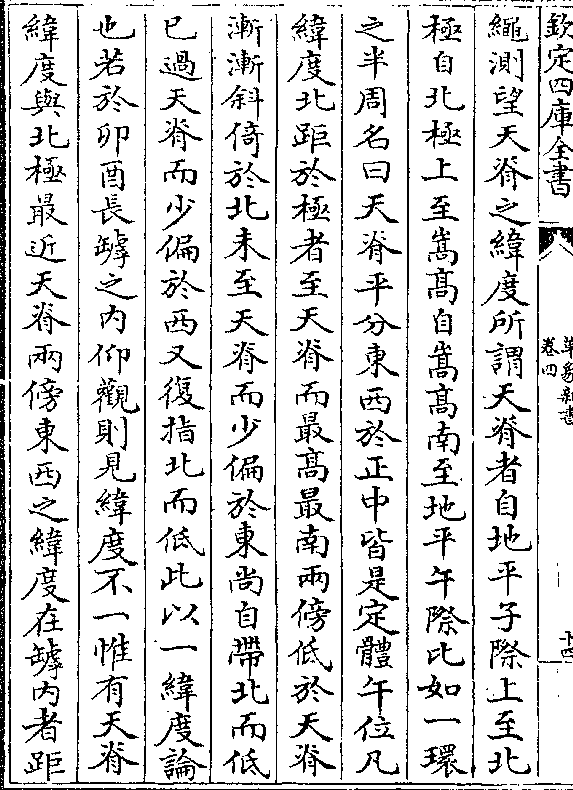 欽定四庫全書
革象新書
卷四
十四
繩測望天脊之緯度所謂天脊者自地平子際上至北
極自北極上至嵩髙自嵩髙南至地平午際比如一環
之半周名曰天脊平分東西於正中皆是定體午位凡
緯度北距於極者至天脊而最髙最南兩傍低於天脊
漸漸斜倚於北未至天脊而少偏於東尚自帶北而低
已過天脊而少偏於西又復指北而低此以一緯度論
也若於卯酉長罅之内仰觀則見緯度不一惟有天脊
緯度與北極最近天脊兩傍東西之緯度在罅内者距